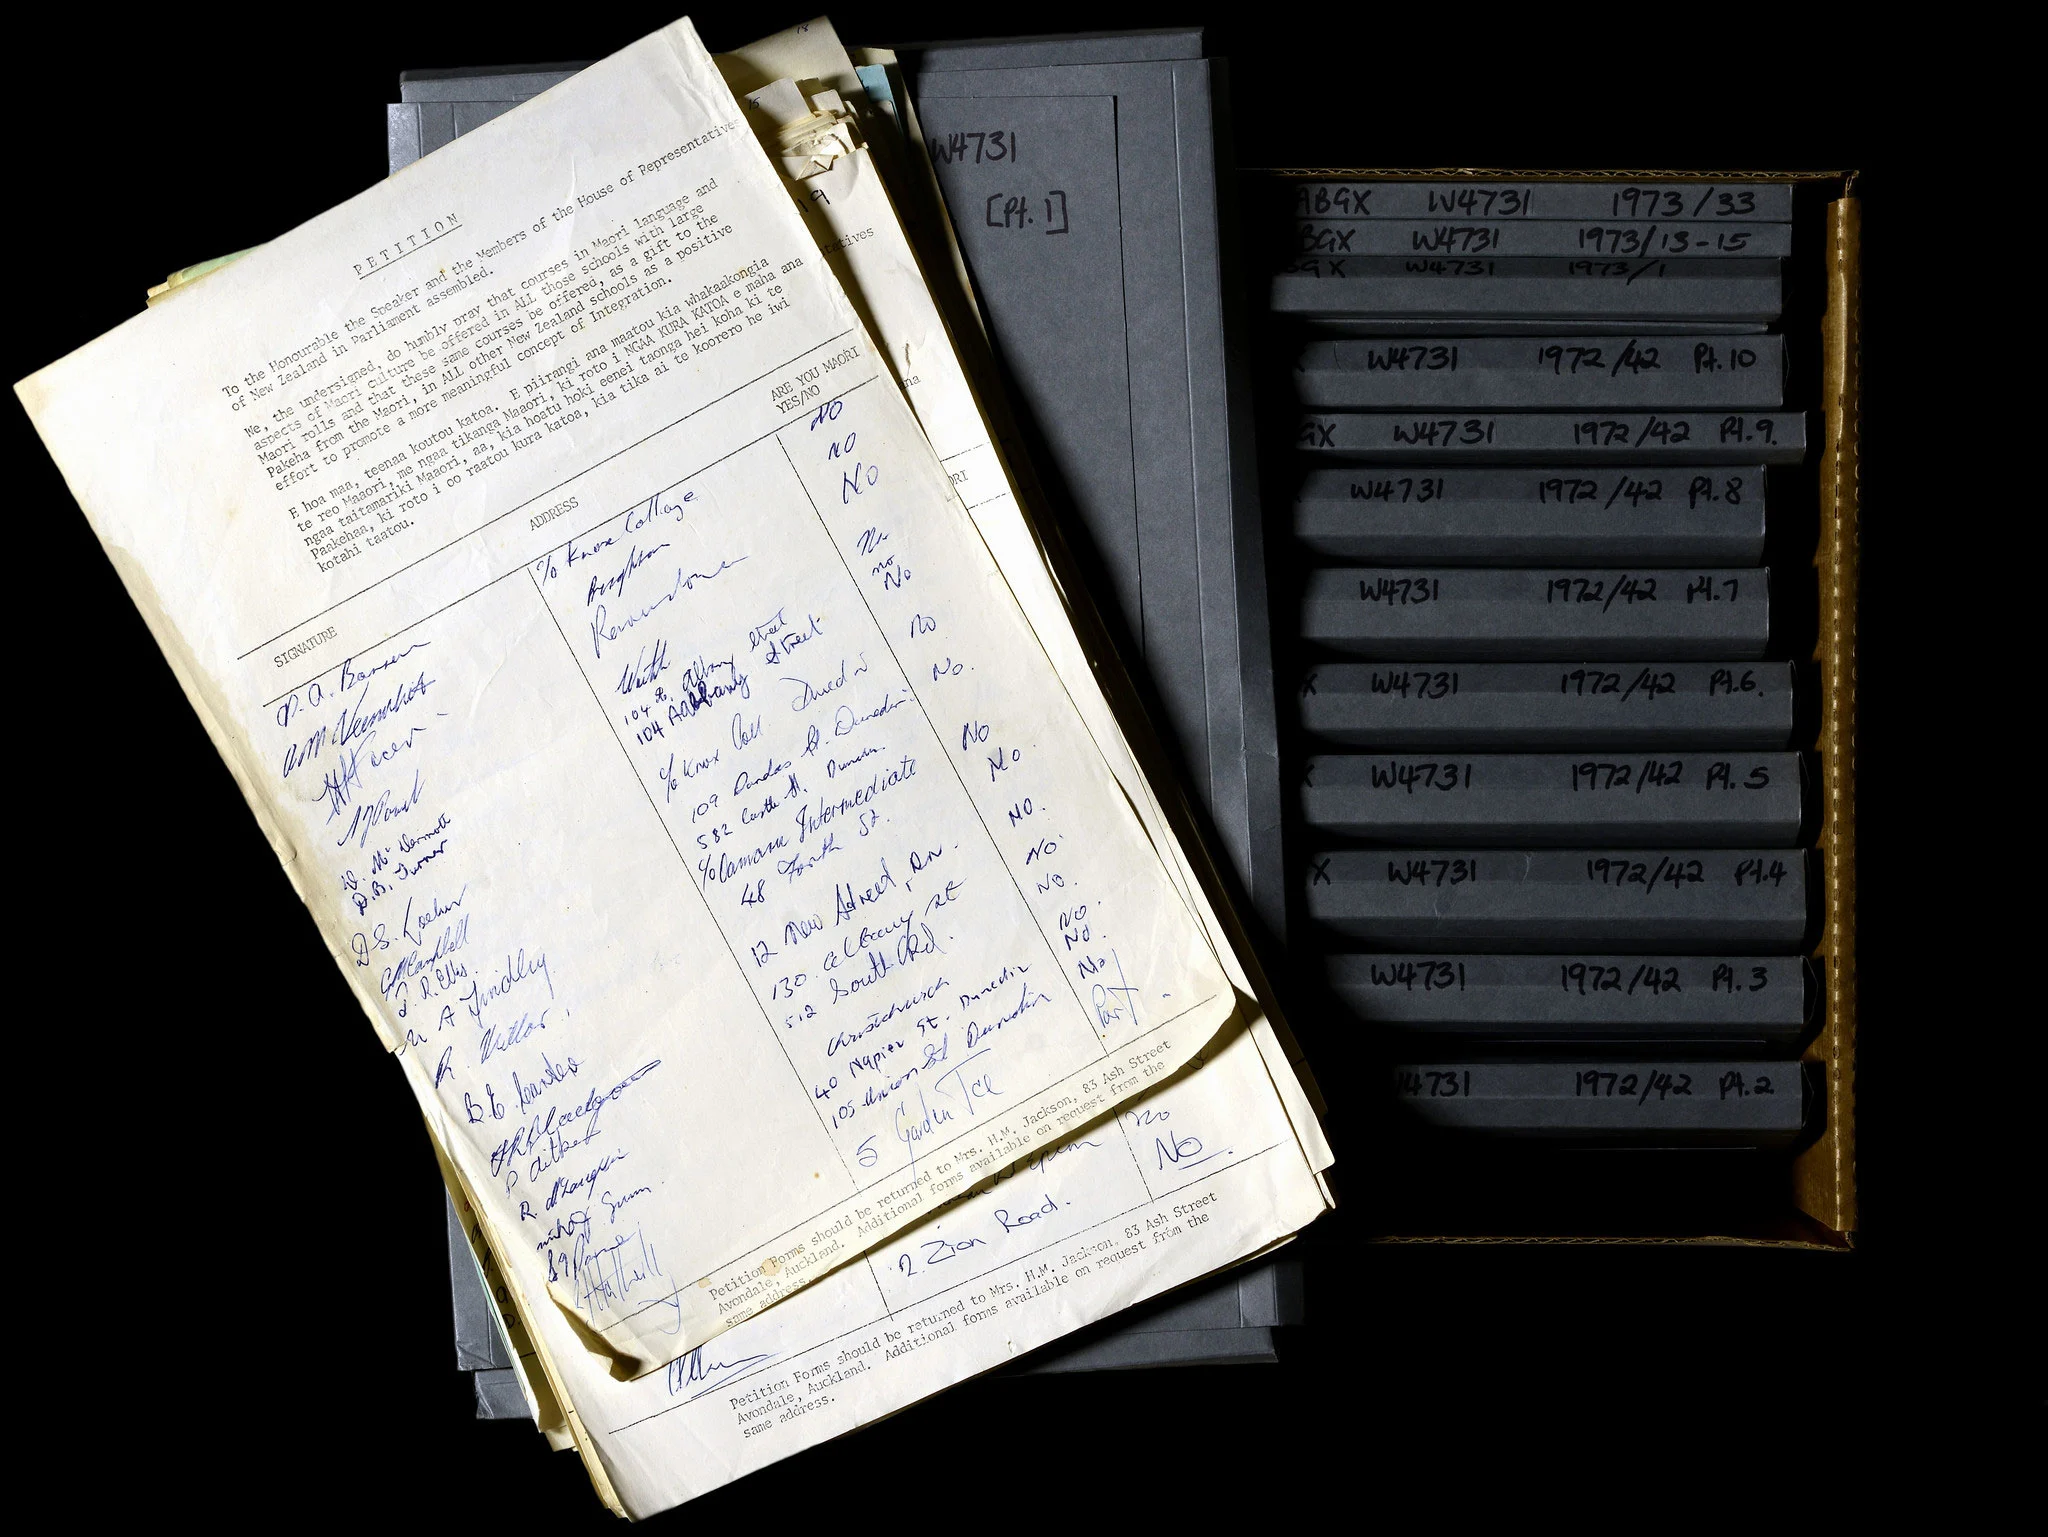 PETITION
To the Honourable the Speaker and the Members of the House of Representatives
of New Zealand in Parliament assembled.
We, the undersigned, do humbly pray that courses in Maori language and
aspects of Maori culture be offered in ALL those schools with large
Maori rolls and that these same courses be offered, as a gift to the
Pakeha from the Maori, in ALL other New Zealand schools as a positive
effort to promote a more meaningful concept of Integration.
E hoa maa, teenaa koutou katoa. E piirangi ana maatou kia whakaakongia
te reo Maaori, me ngaa tikanga Maaori, ki roto i NGAA KURA KATOA e maha ana
ngaa taitamariki Maaori, aa, kia hoatu hoki eenei taonga hei koha ki te
Paakehaa, ki roto i oo raatou kura katoa, kia tika ai te koorero he iwi
kotahi taatou.
SIGNATURE ADDRESS ARE YOU MAORI
YES/NO
c/o Knox College NO
Brighton NO
No
104 Albany Street no
D. B. Turner 104 Albany Street No
c/o Knox Coll Dunedin No
G M Campbell 109 Dundas St. Dunedin. No.
D. R. Ellis. 582 Castle St. Dunedin No
A Findlay c/o Oamaru Intermediate No
48 Forth St. No.
12 New Street, Dn. No.
130 Albany St No.
P. Aitken 512 South Rd. No.
Christchurch No.
40 Napier St. Dunedin No
105 Union St Dunedin Part
5 Garden Tce
Petition Forms should be returned to Mrs. H.M. Jackson, 83 Ash Street
Avondale, Auckland. Additional forms available on request from the
same address.
no
2 Zion Road. No.
Petition Forms should be returned to Mrs. H.M. Jackson, 83 Ash Street
Avondale, Auckland. Additional forms available on request from the
same address.
15
18
19
tatives
ana
ORI
W4731
[Pt. 1]
ABGX W4731 1973/33
BGX W4731 1973/13-15
GX W4731 1973/1
W4731 1972/42 Pt.10
GX W4731 1972/42 Pt.9.
W4731 1972/42 Pt.8
W4731 1972/42 Pt.7
X W4731 1972/42 Pt.6.
X W4731 1972/42 Pt.5
X W4731 1972/42 Pt.4
W4731 1972/42 Pt.3
W4731 1972/42 Pt.2